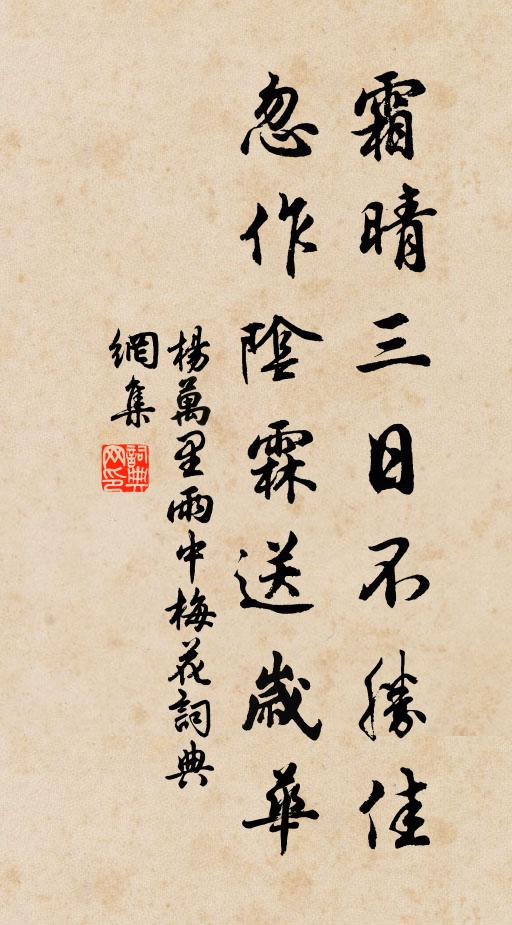 霜晴三日不勝佳
忽作陰霖送歲華
楊萬里雨中梅花詞典
網集
詞典
网印